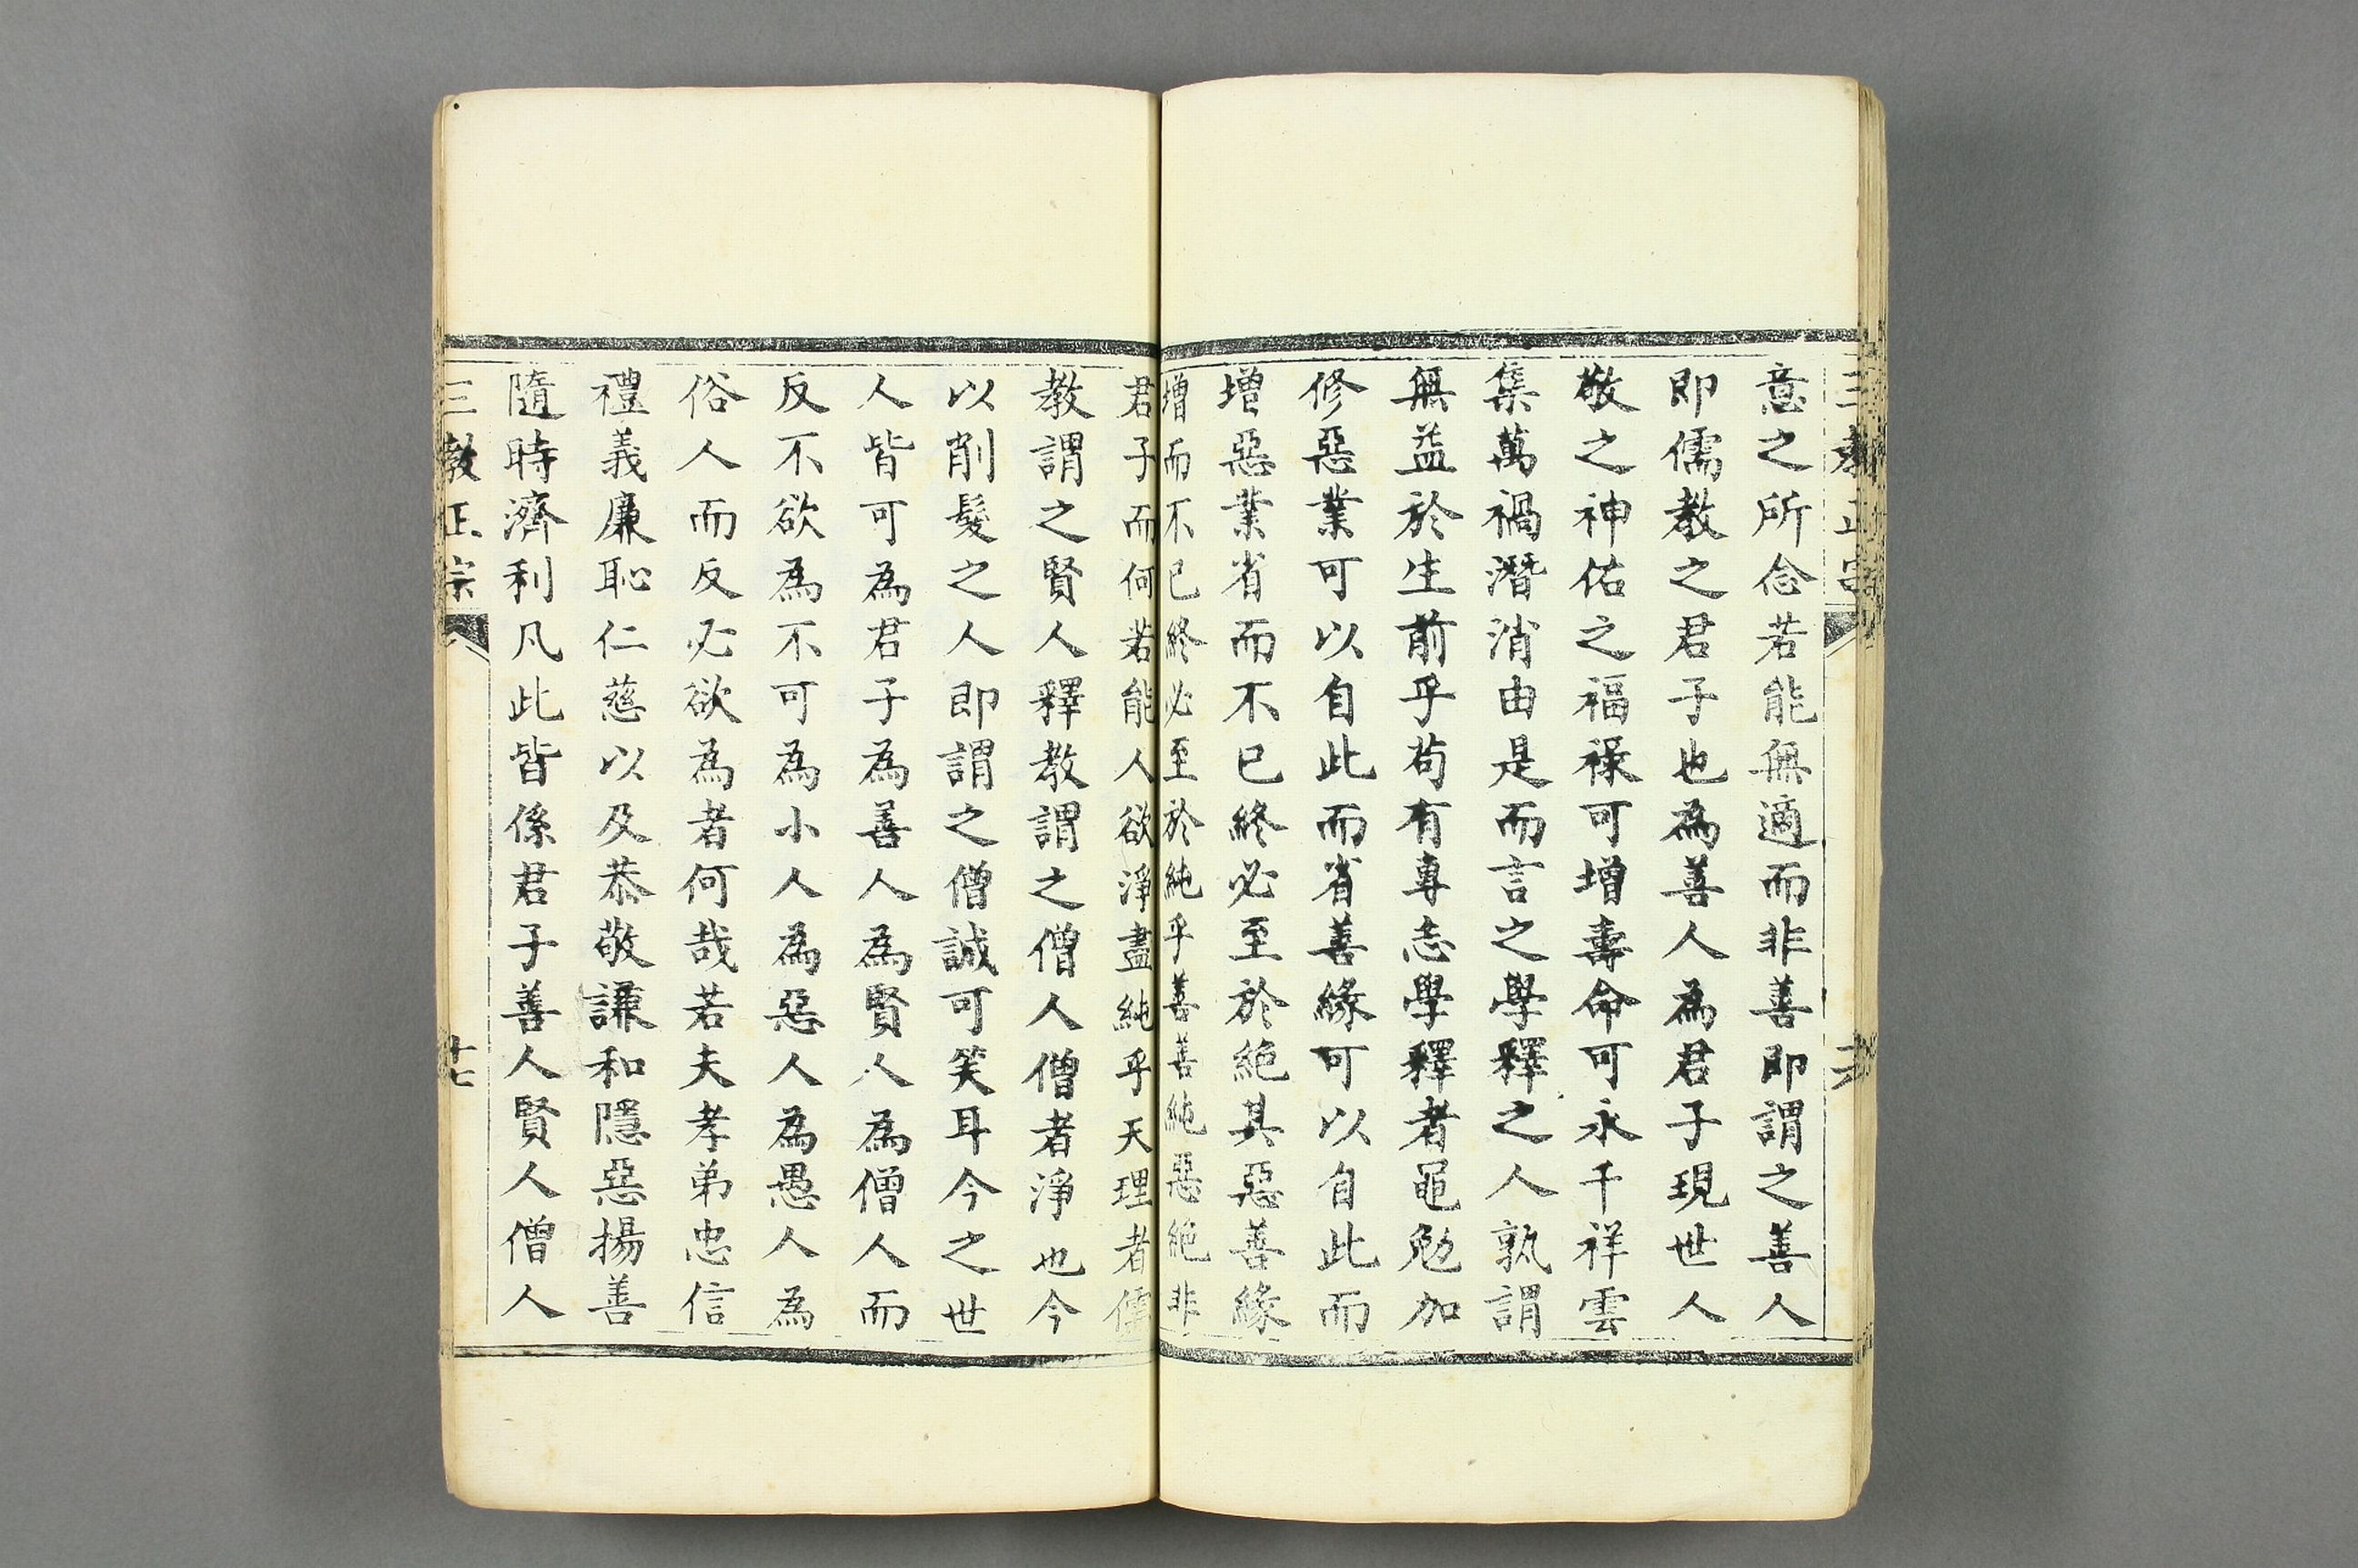 三教正宗
意之所念若能無適而非善即謂之善人
即儒教之君子也為善人為君子現世人
敬之神佑之福祿可增壽命可永千祥雲
集萬禍潛消由是而言之學釋之人孰謂
無益於生前乎苟有專志學釋者黽勉加
修惡業可以自此而省善緣可以自此而
增惡業省而不已終必至於絕其惡善緣
增而不已終必至於純乎善善純惡絕非
君子而何若能人欲淨盡純乎天理者儒
教謂之賢人釋教謂之僧人僧者淨也今
以削髮之人即謂之僧誠可笑耳今之世
人皆可為君子為善人為賢人為僧人而
反不欲為不可為小人為惡人為愚人為
俗人而反必欲為者何哉若夫孝弟忠信
禮義廉恥仁慈以及恭敬謙和隱惡揚善
隨時濟利凡此皆係君子善人賢人僧人
三教正宗
廿七